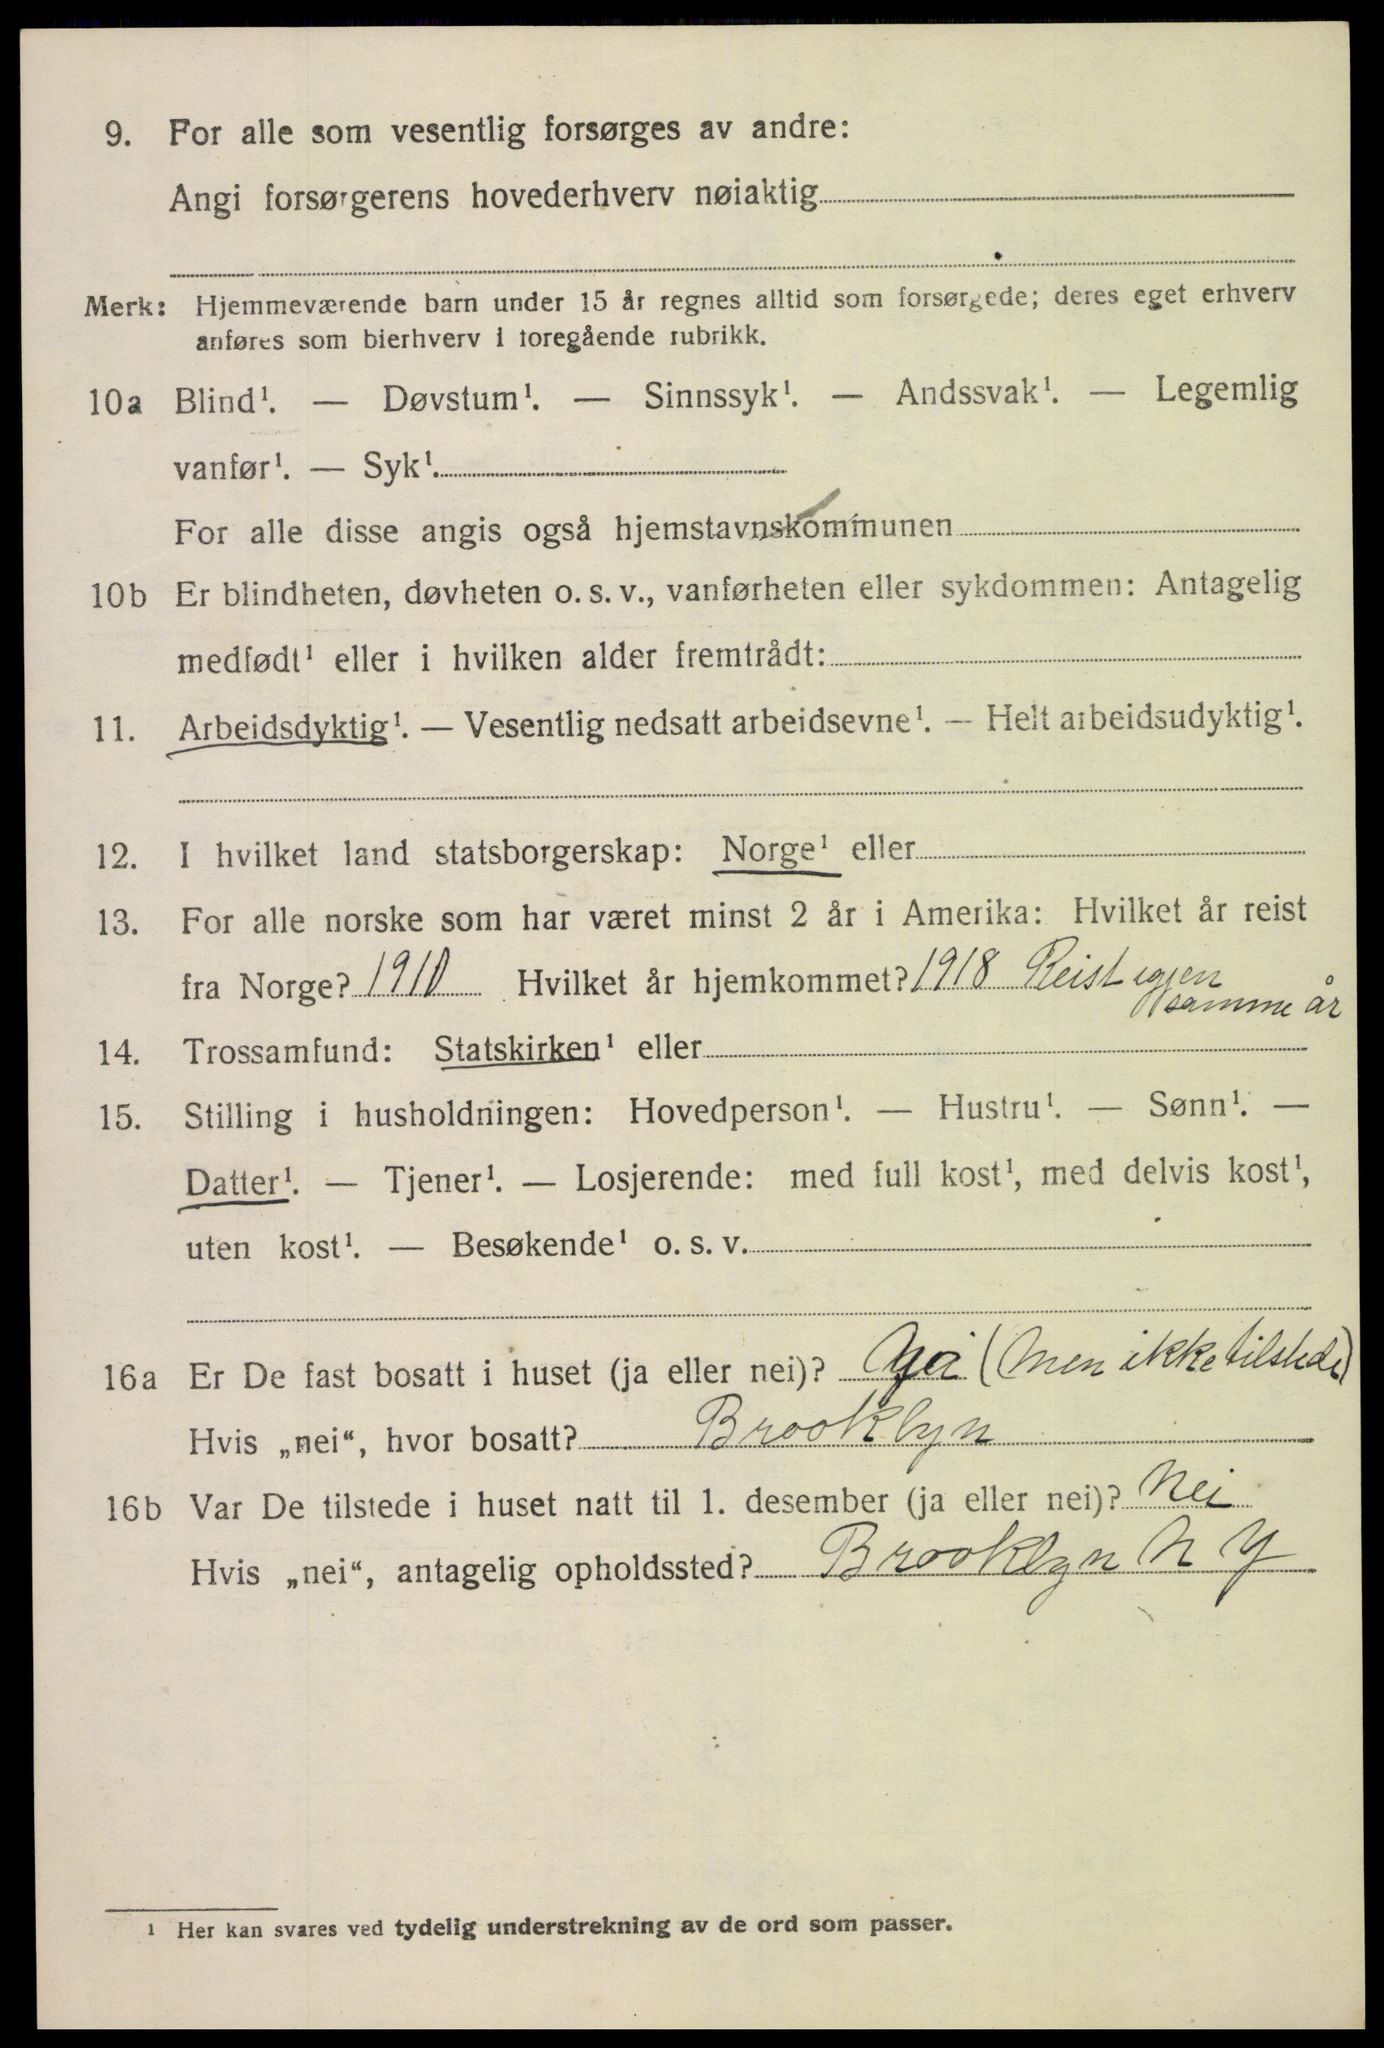 9. For alle som vesentlig forsørges av andre:
Angi forsørgerens hovederhverv nøiaktig
Merk: Hjemmeværende barn under 15 år regnes alltid som forsørgede; deres eget erhverv
anføres som bierhverv i foregående rubrikk.
10a Blind¹. — Døvstum¹. — Sinnssyk¹. — Andssvak¹. — Legemlig
vanfør¹. — Syk¹.
For alle disse angis også hjemstavnskommunen
10b Er blindheten, døvheten o. s. v., vanførheten eller sykdommen: Antagelig
medfødt¹ eller i hvilken alder fremtrådt:
11. Arbeidsdyktig¹. — Vesentlig nedsatt arbeidsevne¹. — Helt arbeidsudyktig¹.
12. I hvilket land statsborgerskap: Norge¹ eller
13. For alle norske som har været minst 2 år i Amerika: Hvilket år reist
fra Norge? 1910 Hvilket år hjemkommet? 1918 Reist igjen
samme år
14. Trossamfund: Statskirken¹ eller
15. Stilling i husholdningen: Hovedperson¹. — Hustru¹. — Sønn¹. —
Datter¹. — Tjener¹. — Losjerende: med full kost¹, med delvis kost¹,
uten kost¹. — Besøkende¹ o. s. v.
16a Er De fast bosatt i huset (ja eller nei)? (Men ikke tilstede)
Hvis „nei“, hvor bosatt? Brooklyn
16b Var De tilstede i huset natt til 1. desember (ja eller nei)? Nei
Hvis „nei“, antagelig opholdssted? Brooklyn N Y
¹ Her kan svares ved tydelig understrekning av de ord som passer.